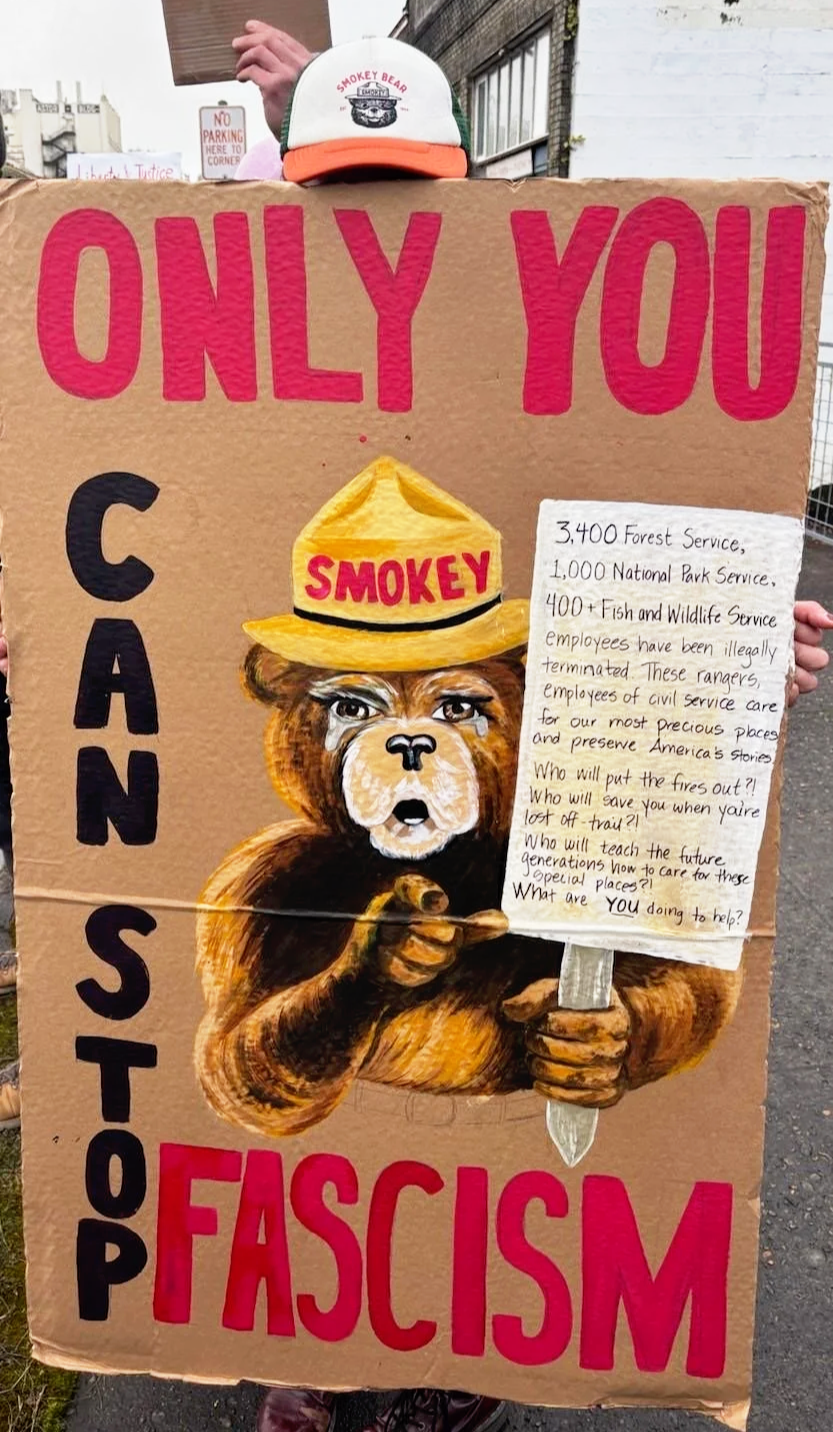 SMOKEY BEAR
SMOKEY
NO
PARKING
HERE TO
CORNER
Liberty & Justice
ONLY YOU
CAN
STOP
FASCISM
SMOKEY
3,400 Forest Service,
1,000 National Park Service,
400+ Fish and Wildlife Service
employees have been illegally
terminated. These rangers,
employees of civil service care
for our most precious places
and preserve America's stories
Who will put the fires out?!
Who will save you when you're
lost off-trail?!
Who will teach the future
generations how to care for these
special places?!
What are YOU doing to help?